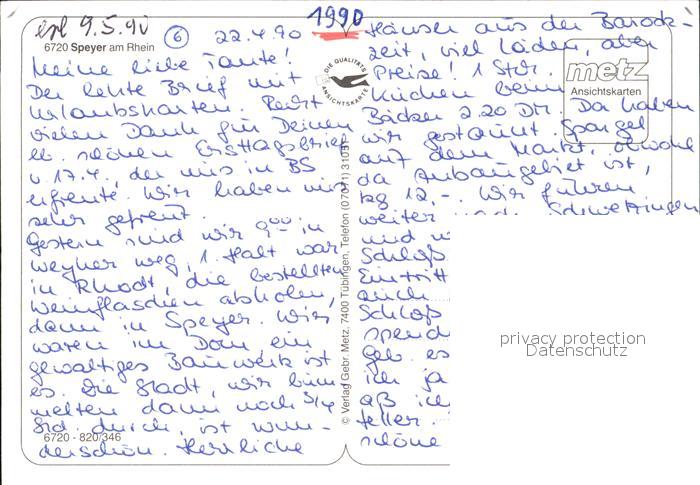 erl 9.5.90
6
22.4.90
1990
6720 Speyer am Rhein
Meine liebe Tante!
Der letzte Brief mit
Urlaubskarten. Recht
vielen Dank für Deinen
lb. schönen Ersttagsbrief
v. 17.4, der uns in BS
erfreute. Wir haben uns
sehr gefreut.
Gestern sind wir 9⁰⁰ in
Weyher weg, 1. Halt war
in Rhodt, die bestellten
Weinflaschen abholen,
dann in Speyer. Wir
waren im Dom, ein
gewaltiges Bauwerk ist
es. Die Stadt, wir bum-
melten dann noch 3/4
Std. durch, ist wun-
derschön. Herrliche
6720 - 820/346
DIE QUALITÄTS
ANSICHTSKARTE
© Verlag Gebr. Metz, 7400 Tübingen, Telefon (07071) 31031
Häuser aus der Barock-
zeit, viel Läden, aber
Preise! 1 Stck.
Kuchen beim
Bäcker 2.20 DM. Da haben
wir gestaunt. Spargel
auf dem Markt, obwohl
da Anbaugebiet ist,
kg 12,-. Wir fuhren
weiter Schwetzingen
und
Schloß
Eintritt
auch
Schloß
spend
Geb. es
ich ja
aß ic
teller.
schöne
metz
Ansichtskarten
privacy protection
Datenschutz